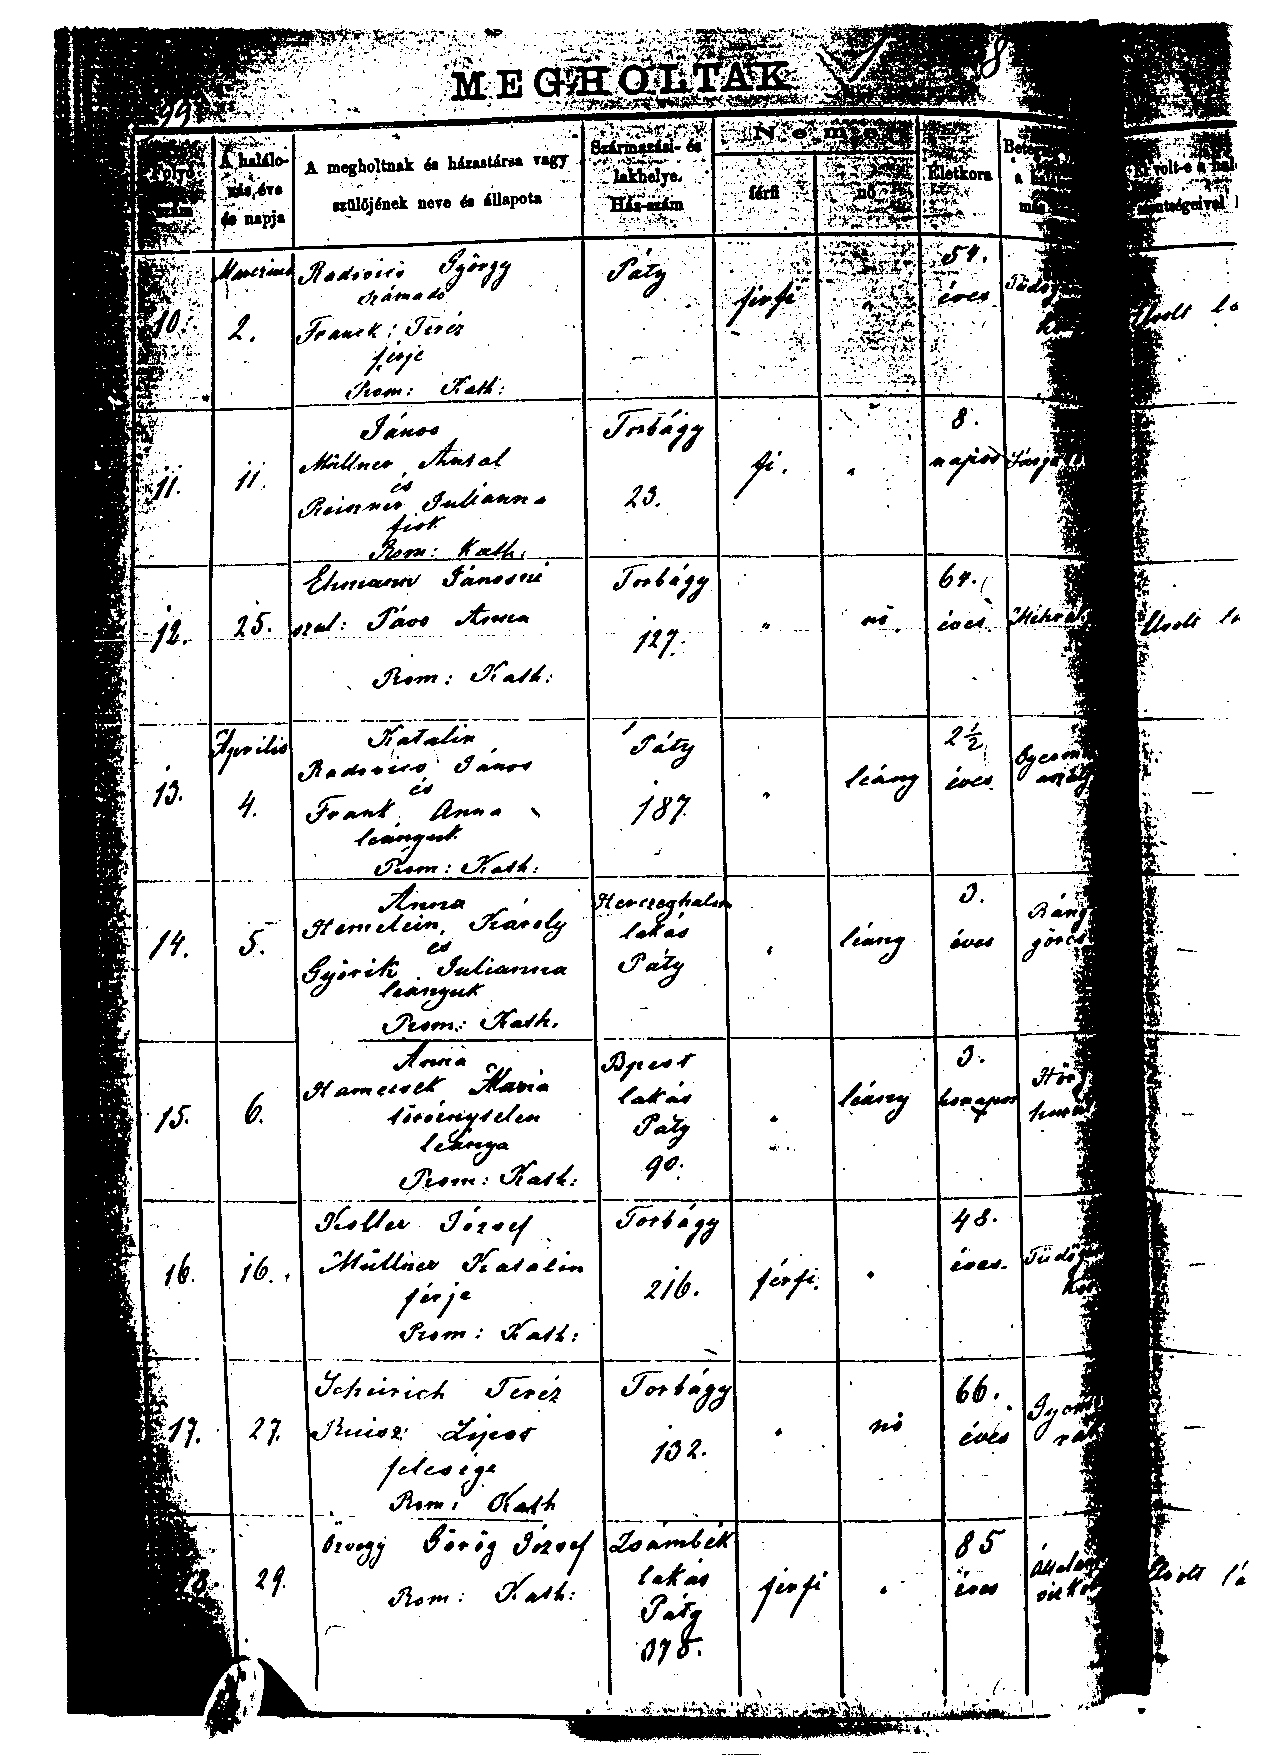 MEGHOLTAK
8
99
Folyó szám
A halálozás éve és napja
A megholtnak és házastársa vagy szülőjének neve és állapota
Származási- és lakhelye. Ház-szám
Neme
férfi
nő
Életkora
El volt-e a
Marczius
10. 2.
Radovics György
számadó
Franck: Teréz
férje
Rom: Kath:
Páty
férfi
"
54.
éves
Üvolt
11. 11.
János
Müllner Antal
és
Reinner Julianna
fiok
Rom: Kath:
Torbágy
23.
fi.
"
8.
napos
12. 25.
Ehmann Jánosné
szul: Pávo Anna
Rom: Kath:
Torbágy
127.
"
nő
64.
éves
Április
13. 4.
Katalin
Radovics János
és
Frank Anna
leányuk
Rom: Kath:
Páty
187.
"
leány
2½
éves
—
14. 5.
Anna
Hemelein Károly
és
Györik Julianna
leányuk
Rom: Kath.
Herczeghalom
lakás
Páty
"
leány
3.
éves
Ráng
görcs
—
15. 6.
Anna
Hamersek Mária
törvénytelen
leánya
Rom: Kath:
Bpest
lakás
Páty
90.
"
leány
3.
honapos
16. 16.
Koller József
Müllner Katalin
férje
Rom: Kath:
Torbágy
216.
férfi.
"
48.
éves.
17. 27.
Scheirich Teréz
Ruisz Lipot
felesége
Rom: Kath
Torbágy
132.
"
nő
66.
éves
—
18. 29.
Özvegy Görög József
Rom: Kath:
Zsámbék
lakás
Páty
férfi
"
85
éves